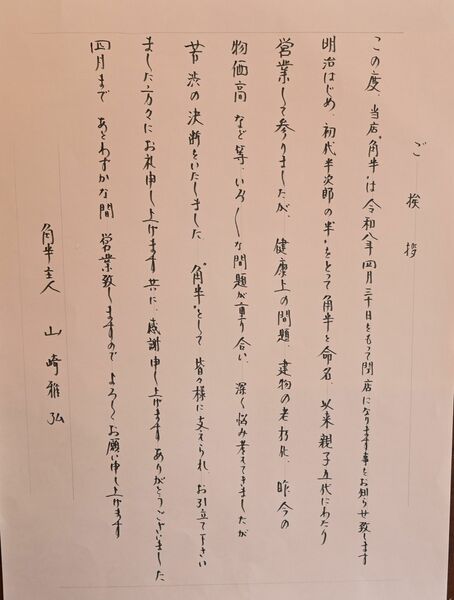 ご挨拶
この度、当店"角半"は令和八年四月三十日をもって閉店になります事をお知らせ致します
明治はじめ、初代半次郎の"半"をとって角半と命名、以来親子五代にわたり
営業して参りましたが、健康上の問題、建物の老朽化、昨今の
物価高など等、いろ〱な問題が重り合い、深く悩み考えてきましたが
苦渋の決断をいたしました "角半"として皆々様に支えられ、お引立て下さい
ました方々にお礼申し上げます共に、感謝申し上げます ありがとうございました
四月まであとわずかな間 営業致しますので よろしくお願い申し上げます
角半主人 山崎雅弘